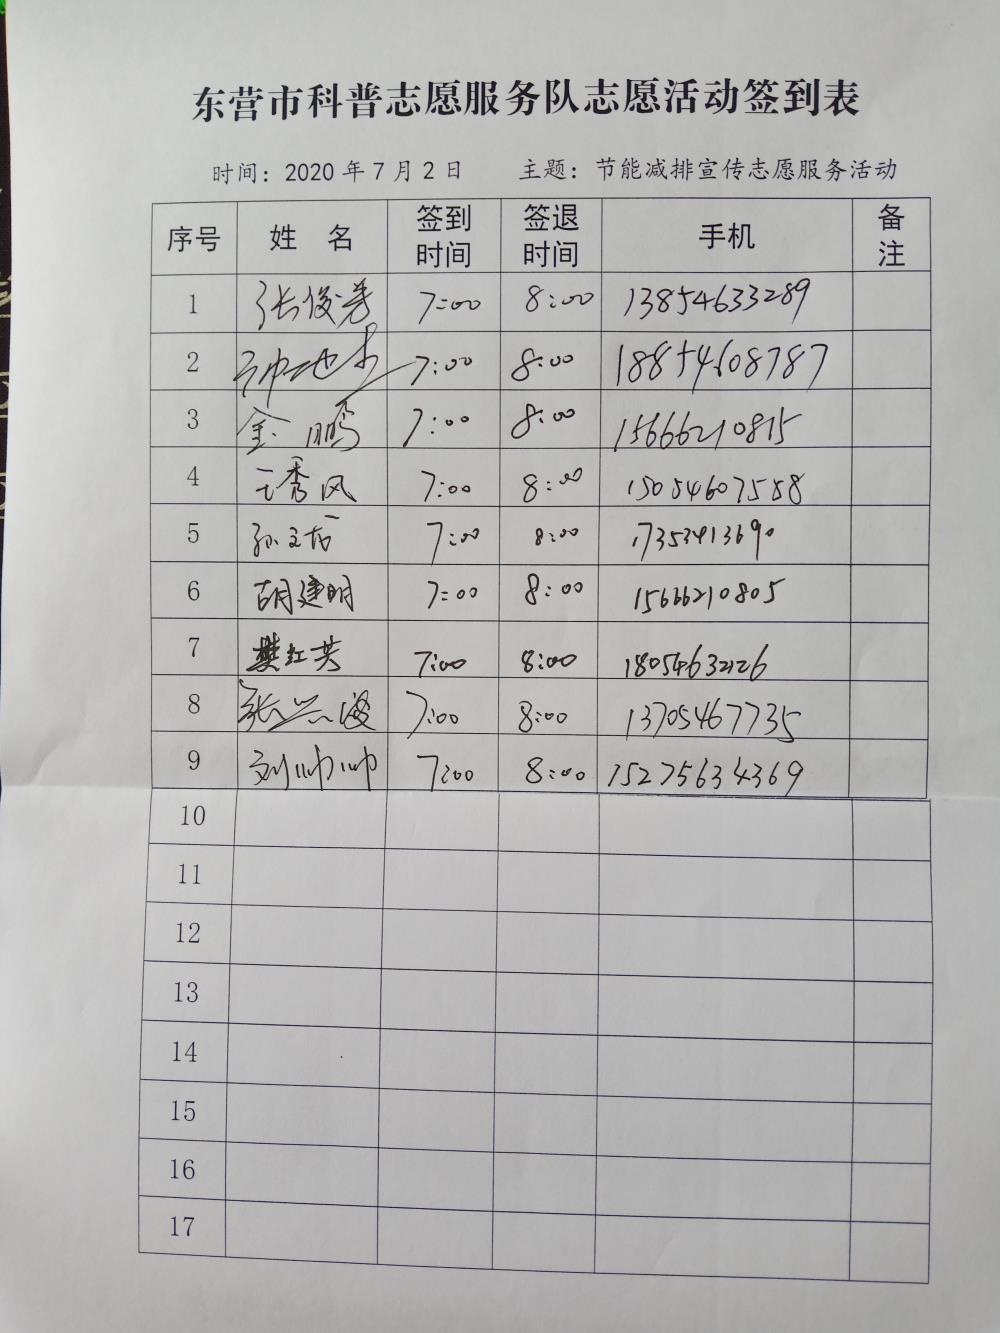 东营市科普志愿服务队志愿活动签到表
时间：2020 年 7 月 2 日 主题：节能减排宣传志愿服务活动
序号 姓 名 签到时间 签退时间 手机 备注
1 张俊芳 7:00 8:00 13854633289
2 7:00 8:00 18854608787
3 金鹏 7:00 8:00 15666210815
4 王秀风 7:00 8:00 15054607588
5 孙文 7:00 8:00 17353413690
6 胡建明 7:00 8:00 15666210805
7 樊红芳 7:00 8:00 18054632126
8 张兴波 7:00 8:00 13705467735
9 刘帅帅 7:00 8:00 15275634369
10
11
12
13
14
15
16
17